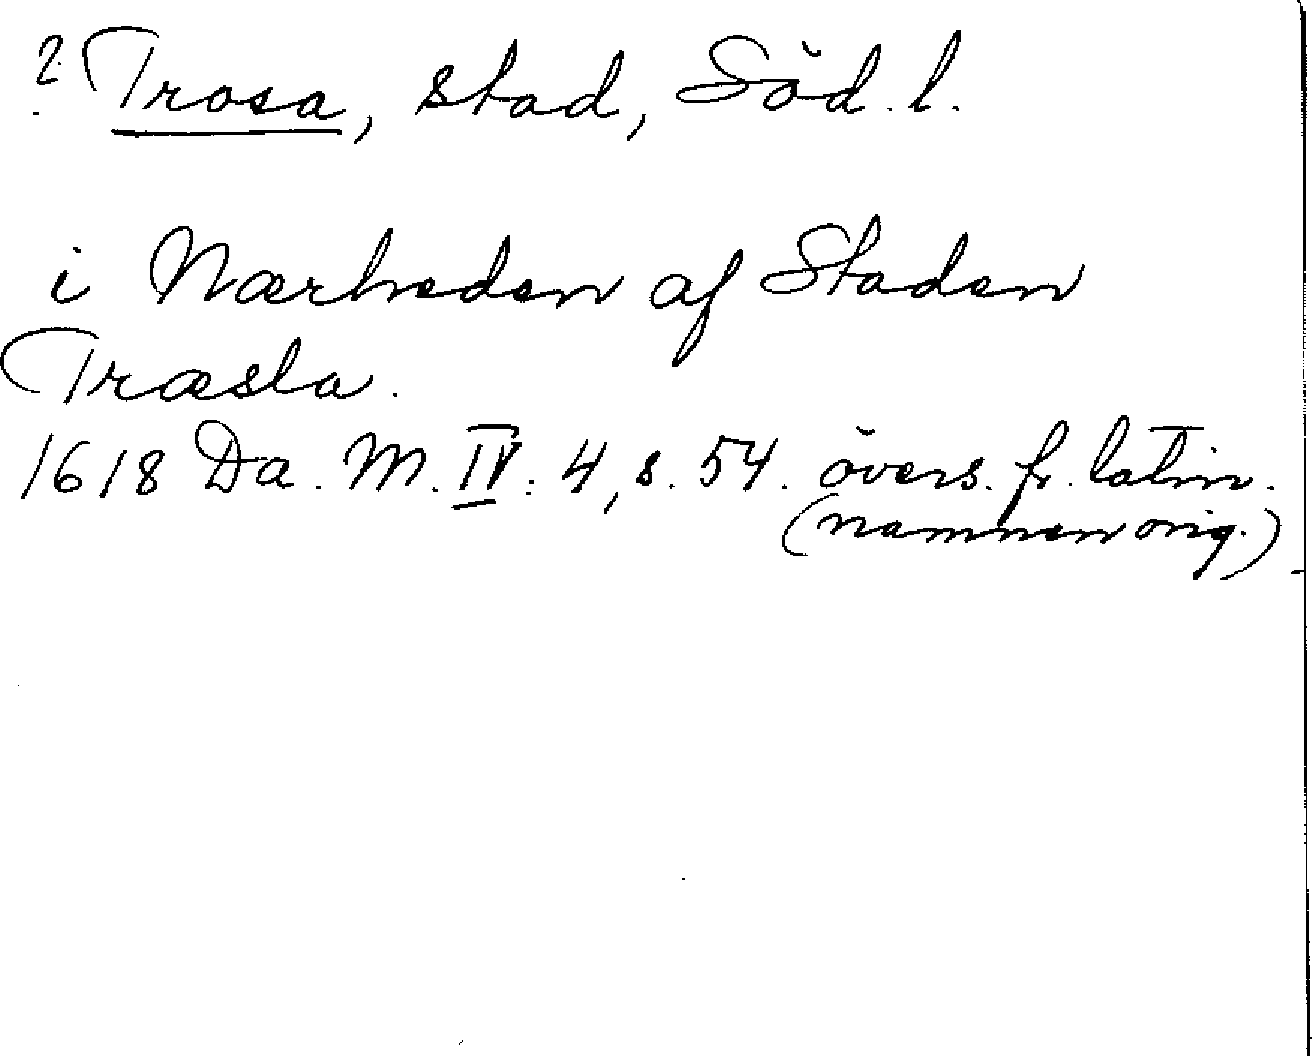 ? Trosa, stad, Söd. l.
i Nærheden af Staden
Træsla.
1618 Da. M. IV: 4, s. 54. övers. fr. latin.
(namnen orig.)